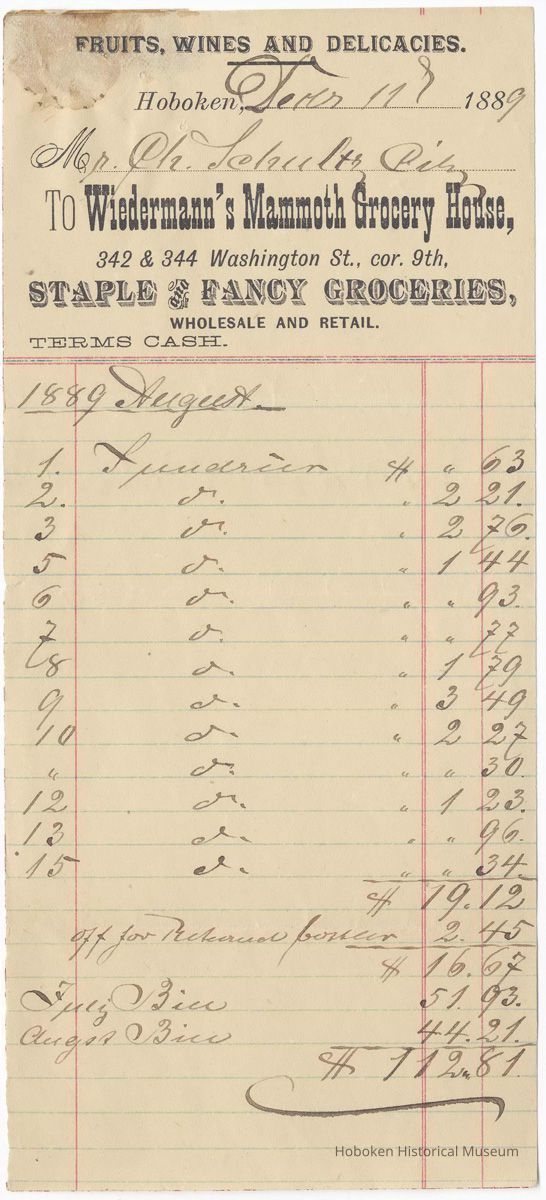 FRUITS, WINES AND DELICACIES.
Hoboken, 11 1889
Mr. Ch. Schultz City
To Wiedermann's Mammoth Grocery House,
342 & 344 Washington St., cor. 9th,
STAPLE and FANCY GROCERIES,
WHOLESALE AND RETAIL.
TERMS CASH.
1889 August
1. Sundries $ " 63
2. d. " 2 21.
3 d. " 2 76.
5 d. " 1 44
6 d. " " 93.
7 d. " " 77
8 d. " 1 79
9 d. " 3 49
10 d. " 2 27
" d. " " 30.
12 d. " 1 23.
13 d. " " 96.
15 d. " " 34.
$ 19.12
off for 2.45
$ 16.67
July Bill 51.93.
Augst Bill 44.21.
$ 112.81.
Hoboken Historical Museum